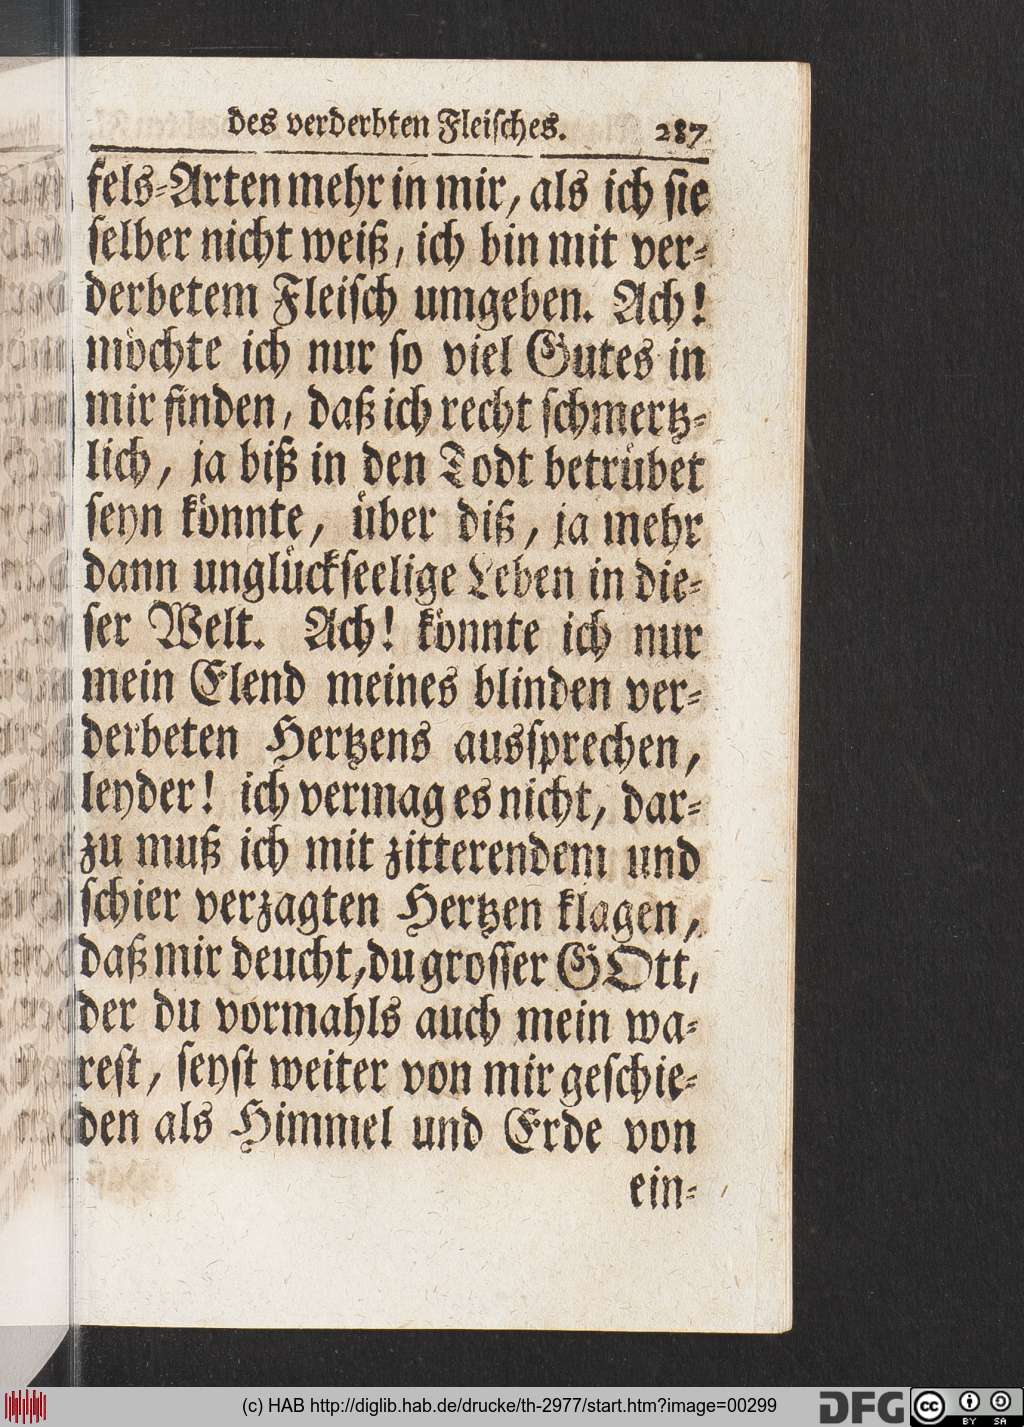 des verderbten Fleisches. 287
fels-Arten mehr in mir, als ich sie
selber nicht weiß, ich bin mit ver-
derbetem Fleisch umgeben. Ach!
möchte ich nur so viel Gutes in
mir finden, daß ich recht schmertz-
lich, ja biß in den Todt betrübet
seyn könnte, über diß, ja mehr
dann unglückseelige Leben in die-
ser Welt. Ach! könnte ich nur
mein Elend meines blinden ver-
derbeten Hertzens aussprechen,
leyder! ich vermag es nicht, dar-
zu muß ich mit zitterendem und
schier verzagten Hertzen klagen,
daß mir deucht, du grosser GOtt,
der du vormahls auch mein wa-
rest, seyst weiter von mir geschie-
den als Himmel und Erde von
ein-
(c) HAB http://diglib.hab.de/drucke/th-2977/start.htm?image=00299
DFG
cc BY SA